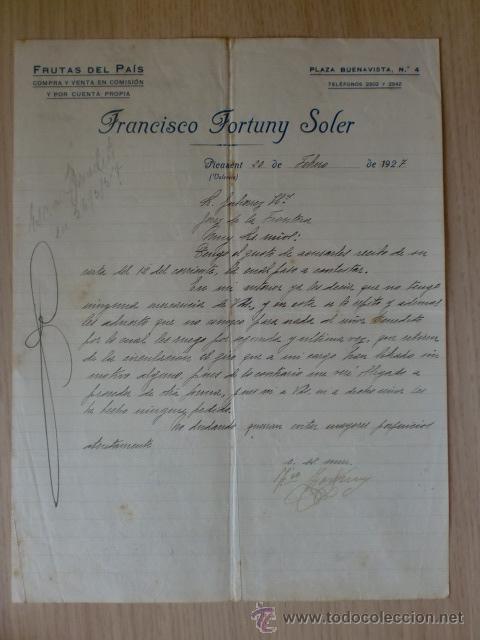 FRUTAS DEL PAÍS
COMPRA Y VENTA EN COMISIÓN
Y POR CUENTA PROPIA
PLAZA BUENAVISTA, N.º 4
TELÉFONOS 2902 Y 2942
Francisco Fortuny Soler
Picasent 20 de Febro de 1927
(Valencia)
Jerez de la Frontera
Muy Sr. mio:
Tengo el gusto de acusarles recibo de su
carta del 18 del corriente, la cual paso a contestar.
En mi anterior ya les decia, que no tengo
ninguna mercancia de Vds, y en esta se lo repito y ademas
les advierto que no tengo para nada al señor Benedito
por lo cual les ruego por segunda y ultima vez, que retiren
de la circulacion el giro que a mi cargo han librado sin
motivo alguno, pues de lo contrario me veré obligado a
proceder de otra forma, pues ni a Vds. ni a dicho señor les
he hecho ningun pedido.
No dudando querran evitar mayores perjuicios
atentamente
s. s.
Fortuny
www.todocoleccion.net